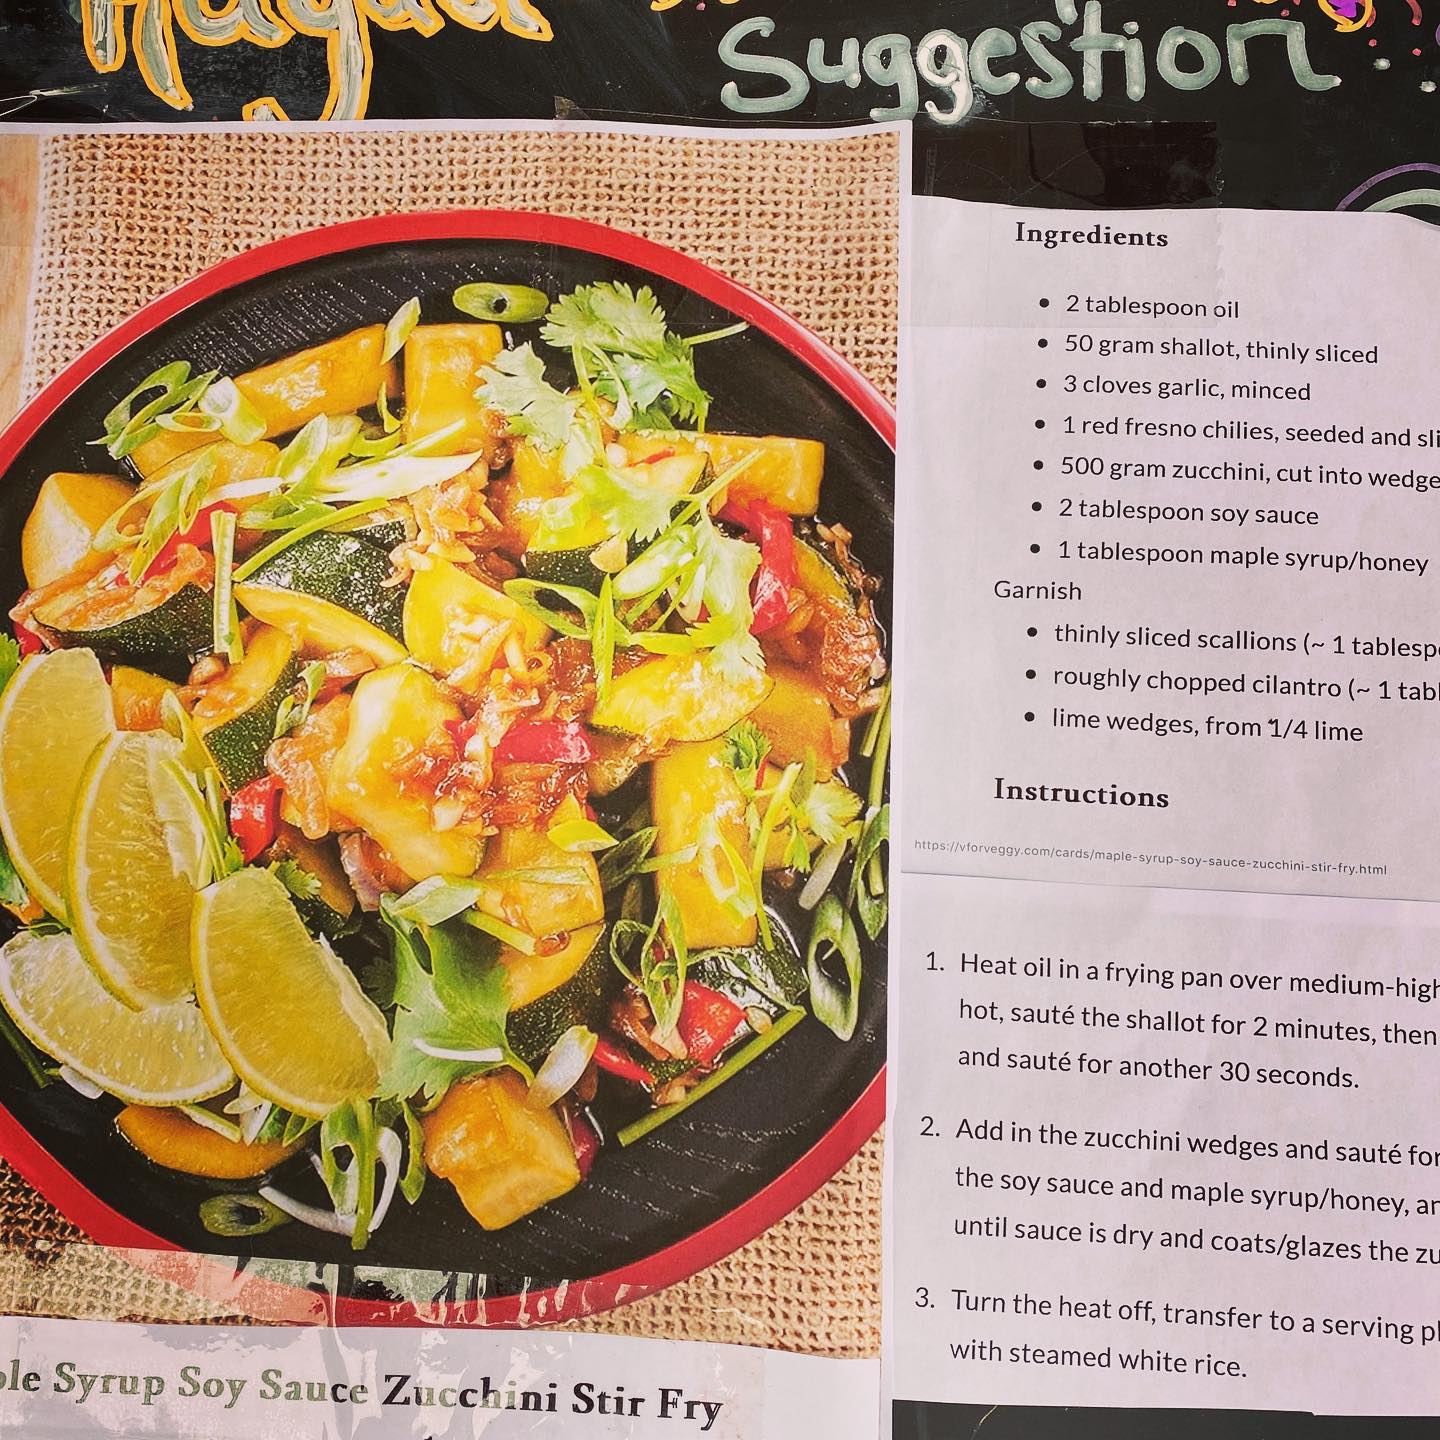 Suggestion
Ingredients
2 tablespoon oil
50 gram shallot, thinly sliced
3 cloves garlic, minced
1 red fresno chilies, seeded and sli
500 gram zucchini, cut into wedge
2 tablespoon soy sauce
1 tablespoon maple syrup/honey
Garnish
thinly sliced scallions (~ 1 tablesp
roughly chopped cilantro (~ 1 tabl
lime wedges, from 1/4 lime
Instructions
https://vforveggy.com/cards/maple-syrup-soy-sauce-zucchini-stir-fry.html
1. Heat oil in a frying pan over medium-high
hot, sauté the shallot for 2 minutes, then
and sauté for another 30 seconds.
2. Add in the zucchini wedges and sauté for
the soy sauce and maple syrup/honey, an
until sauce is dry and coats/glazes the zu
3. Turn the heat off, transfer to a serving pl
with steamed white rice.
ple Syrup Soy Sauce Zucchini Stir Fry